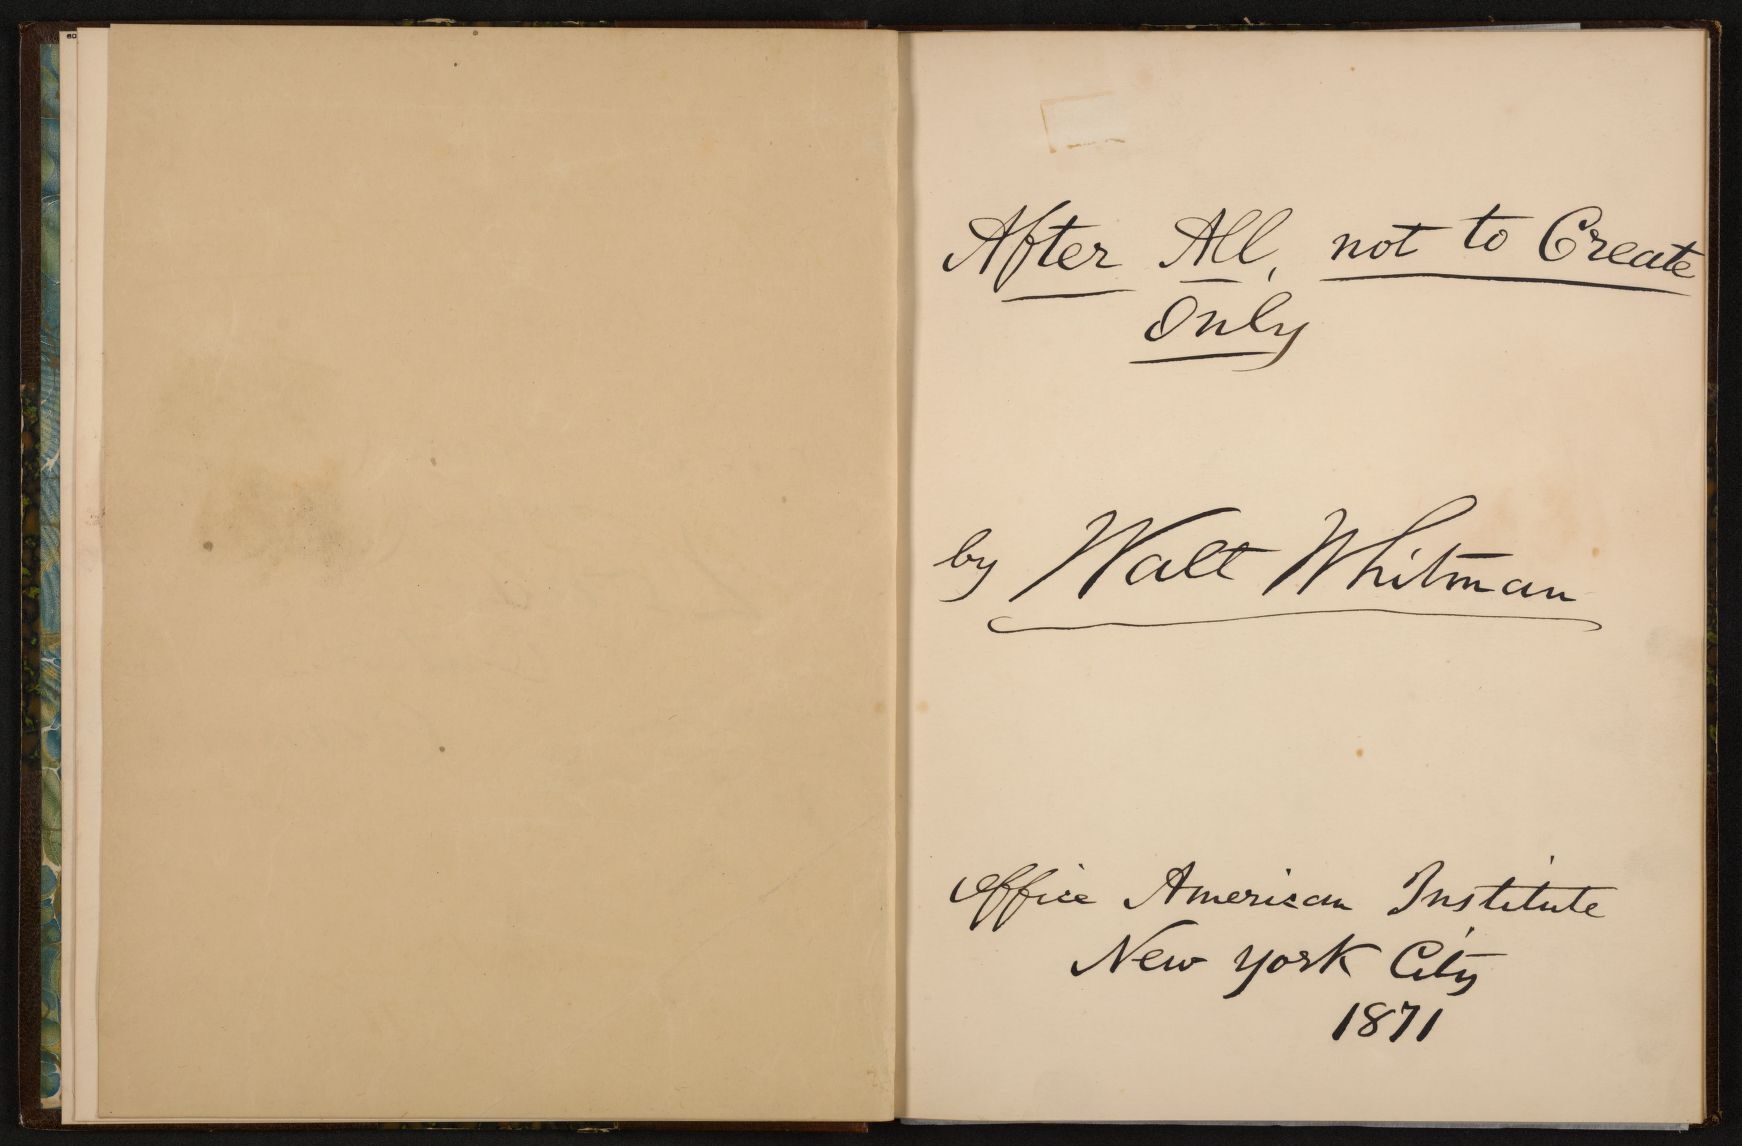 After All, not to Create
Only
by Walt Whitman
Office American Institute
New York City
1871